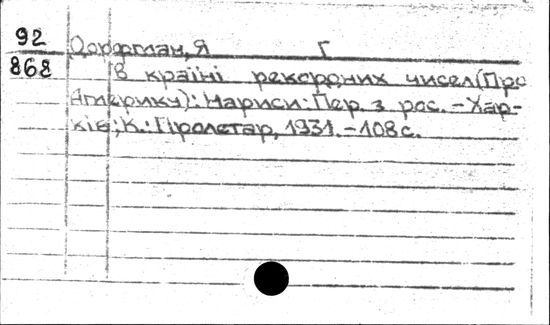 92
868
Дорфман, Я Г
В країні рекордних чисел (Про
Америку): Нариси: Пер. з рос. – Хар-
ків; К.: Пролетар, 1931. – 108 с.